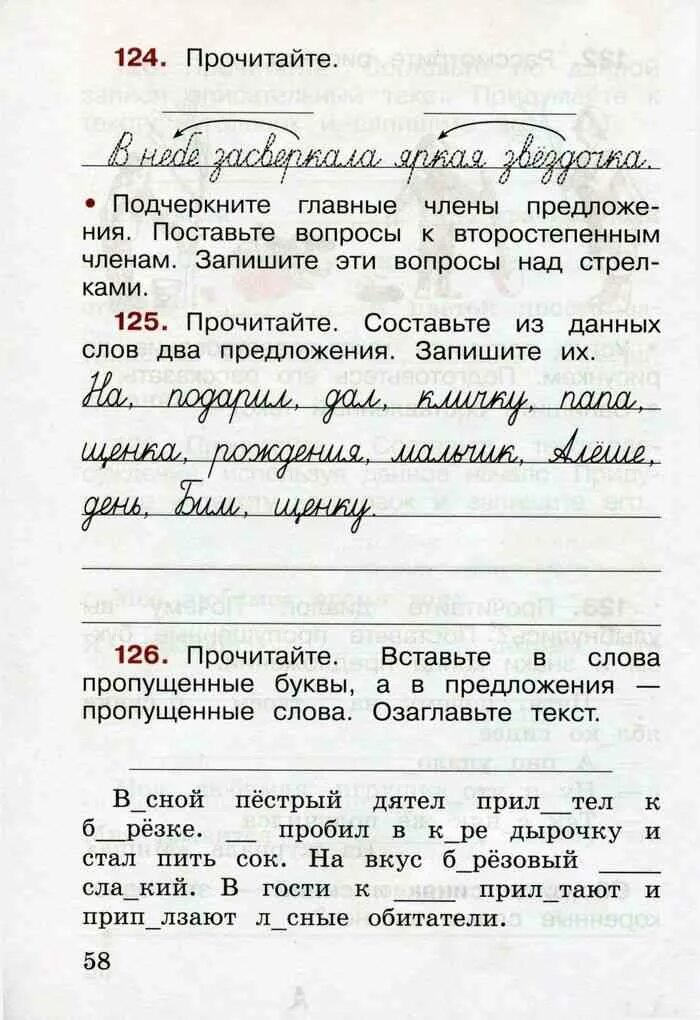 124. Прочитайте.
В небе засверкала яркая звёздочка.
• Подчеркните главные члены предложе-
ния. Поставьте вопросы к второстепенным
членам. Запишите эти вопросы над стрел-
ками.
125. Прочитайте. Составьте из данных
слов два предложения. Запишите их.
На, подарил, дал, кличку, папа,
щенка, рождения, мальчик, Алёше,
день, Бим, щенку.
126. Прочитайте. Вставьте в слова
пропущенные буквы, а в предложения —
пропущенные слова. Озаглавьте текст.
В_сной пёстрый дятел прил__тел к
б__рёзке. ____ пробил в к__ре дырочку и
стал пить сок. На вкус б_рёзовый ____
сла_кий. В гости к ____ прил_тают и
прип_лзают л_сные обитатели.
58